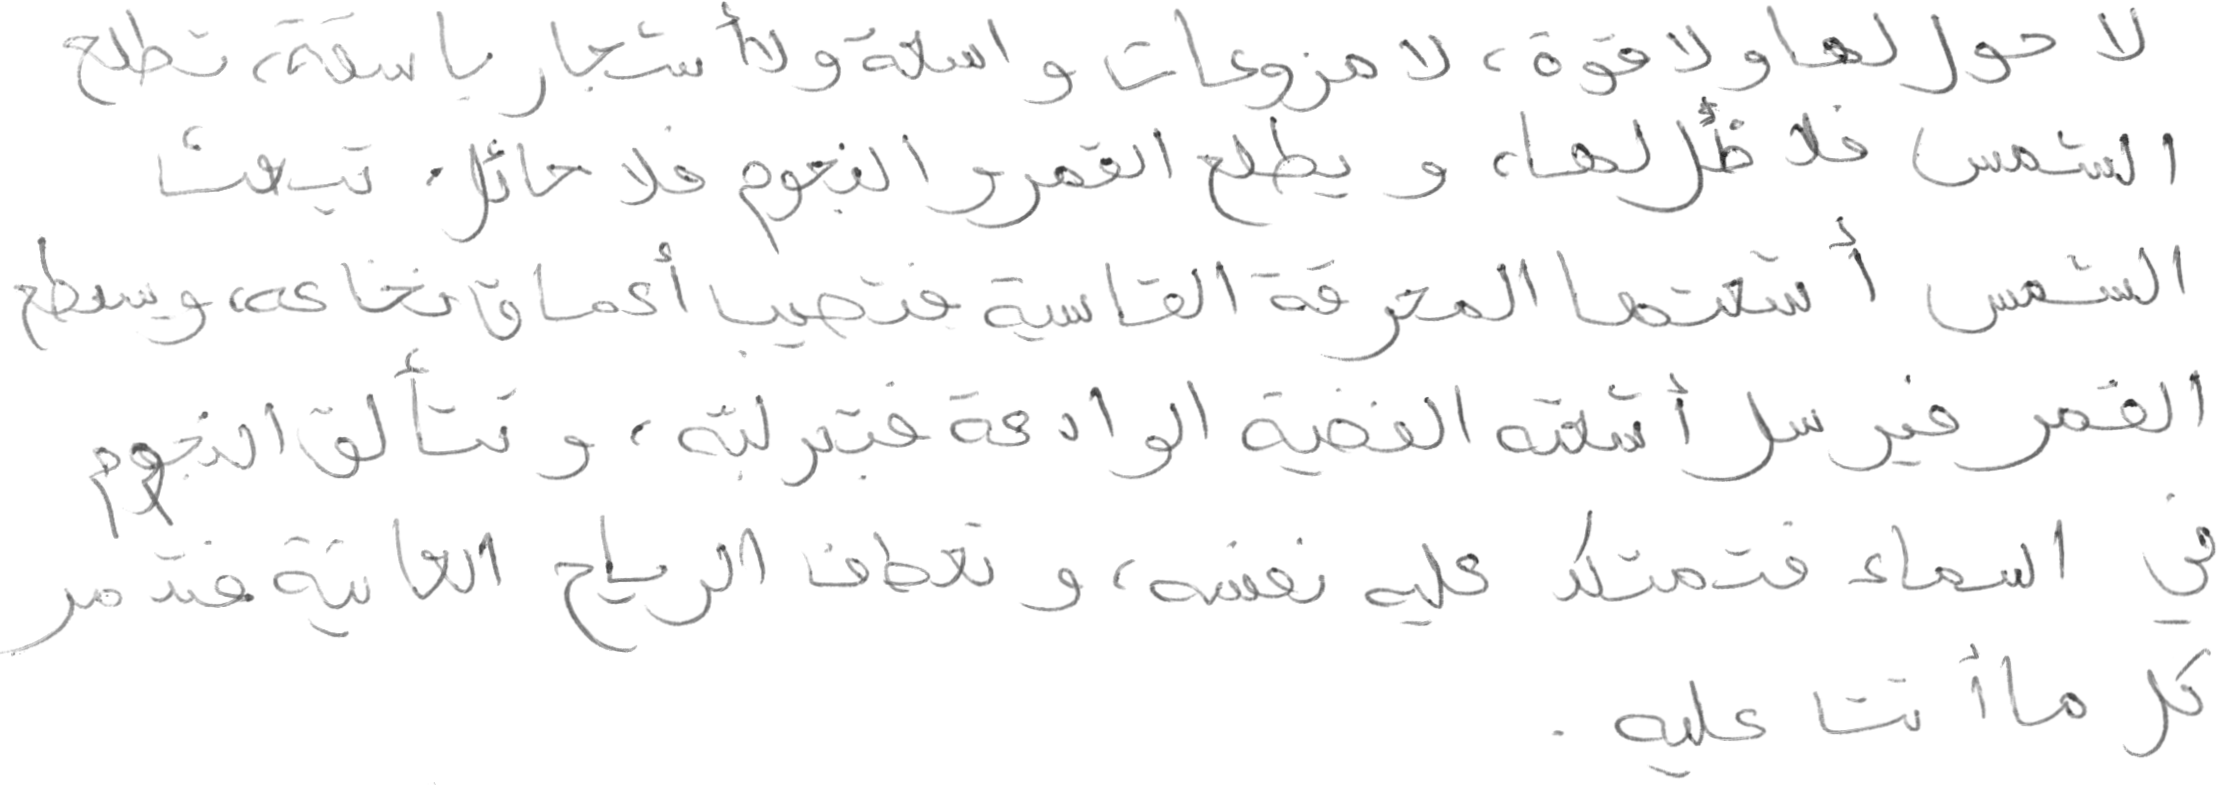 لا حول لها ولا قوة، لا مزوعات واسعة ولا أشجار باسقة، تطلع
الشمس فلا ظل لها، و يطلع القمر و النجوم فلا حائل. تبعث
الشمس أشعتها المحرقة القاسية فتصيب أعماق نخاعه، ويسطع
القمر فيرسل أشعته الفضية الوادعة فتبرلبّه، و تتألق النجوم
في السماء فتمتلك عليه نفسه، و تعطف الرياح العاتية فتدمر
كل ما أتت عليه .